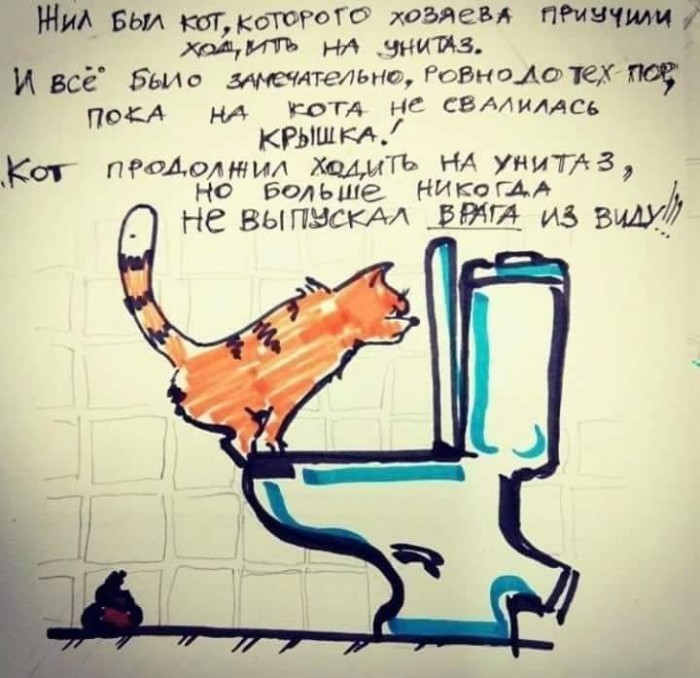 Жил был кот, которого хозяева приучили
ходить на унитаз.
И всё было замечательно, ровно до тех пор,
пока на кота не свалилась
крышка!
Кот продолжил ходить на унитаз,
но больше никогда
не выпускал врага из виду!!!